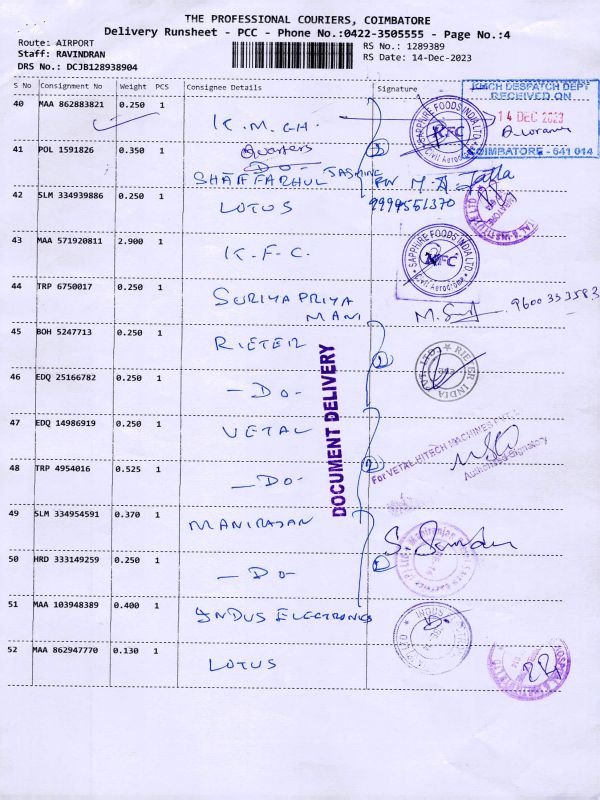 THE PROFESSIONAL COURIERS, COIMBATORE
Delivery Runsheet - PCC - Phone No.:0422-3505555 - Page No.:4
Route: AIRPORT
RS No.: 1289389
Staff: RAVINDRAN
RS Date: 14-Dec-2023
DRS No.: DCJB128938904
S No Consignment No Weight PCS Consignee Details Signature
KMCH DESPATCH DEPT
RECEIVED ON
14 DEC 2023
COIMBATORE - 641 014
40 MAA 862883821 0.250 1 K.M.CH.
SAPPHIRE FOODS INDIA LTD.
KFC
Civil Aerodrome
41 POL 1591826 0.350 1 Quarters
DO
SHAFFARHUL JASMINE
9994551370
42 SLM 334939886 0.250 1 LOTUS
43 MAA 571920811 2.900 1 K.F.C.
SAPPHIRE FOODS INDIA LTD.
KFC
Civil Aerodrome
44 TRP 6750017 0.250 1 SURIYAPRIYA
MANI
9600333583
45 BOH 5247713 0.250 1 RIETER
RIETER INDIA PVT. LTD
46 EDQ 25166782 0.250 1 - DO -
DOCUMENT DELIVERY
47 EDQ 14986919 0.250 1 VETAL
For VETAL HITECH MACHINES PVT LTD
Authorised Signatory
48 TRP 4954016 0.525 1 - DO -
49 SLM 334954591 0.370 1 MANIRAJAN
50 HRD 333149259 0.250 1 - DO -
51 MAA 103948389 0.400 1 YNDUS ELECTRONICS
52 MAA 862947770 0.130 1 LOTUS